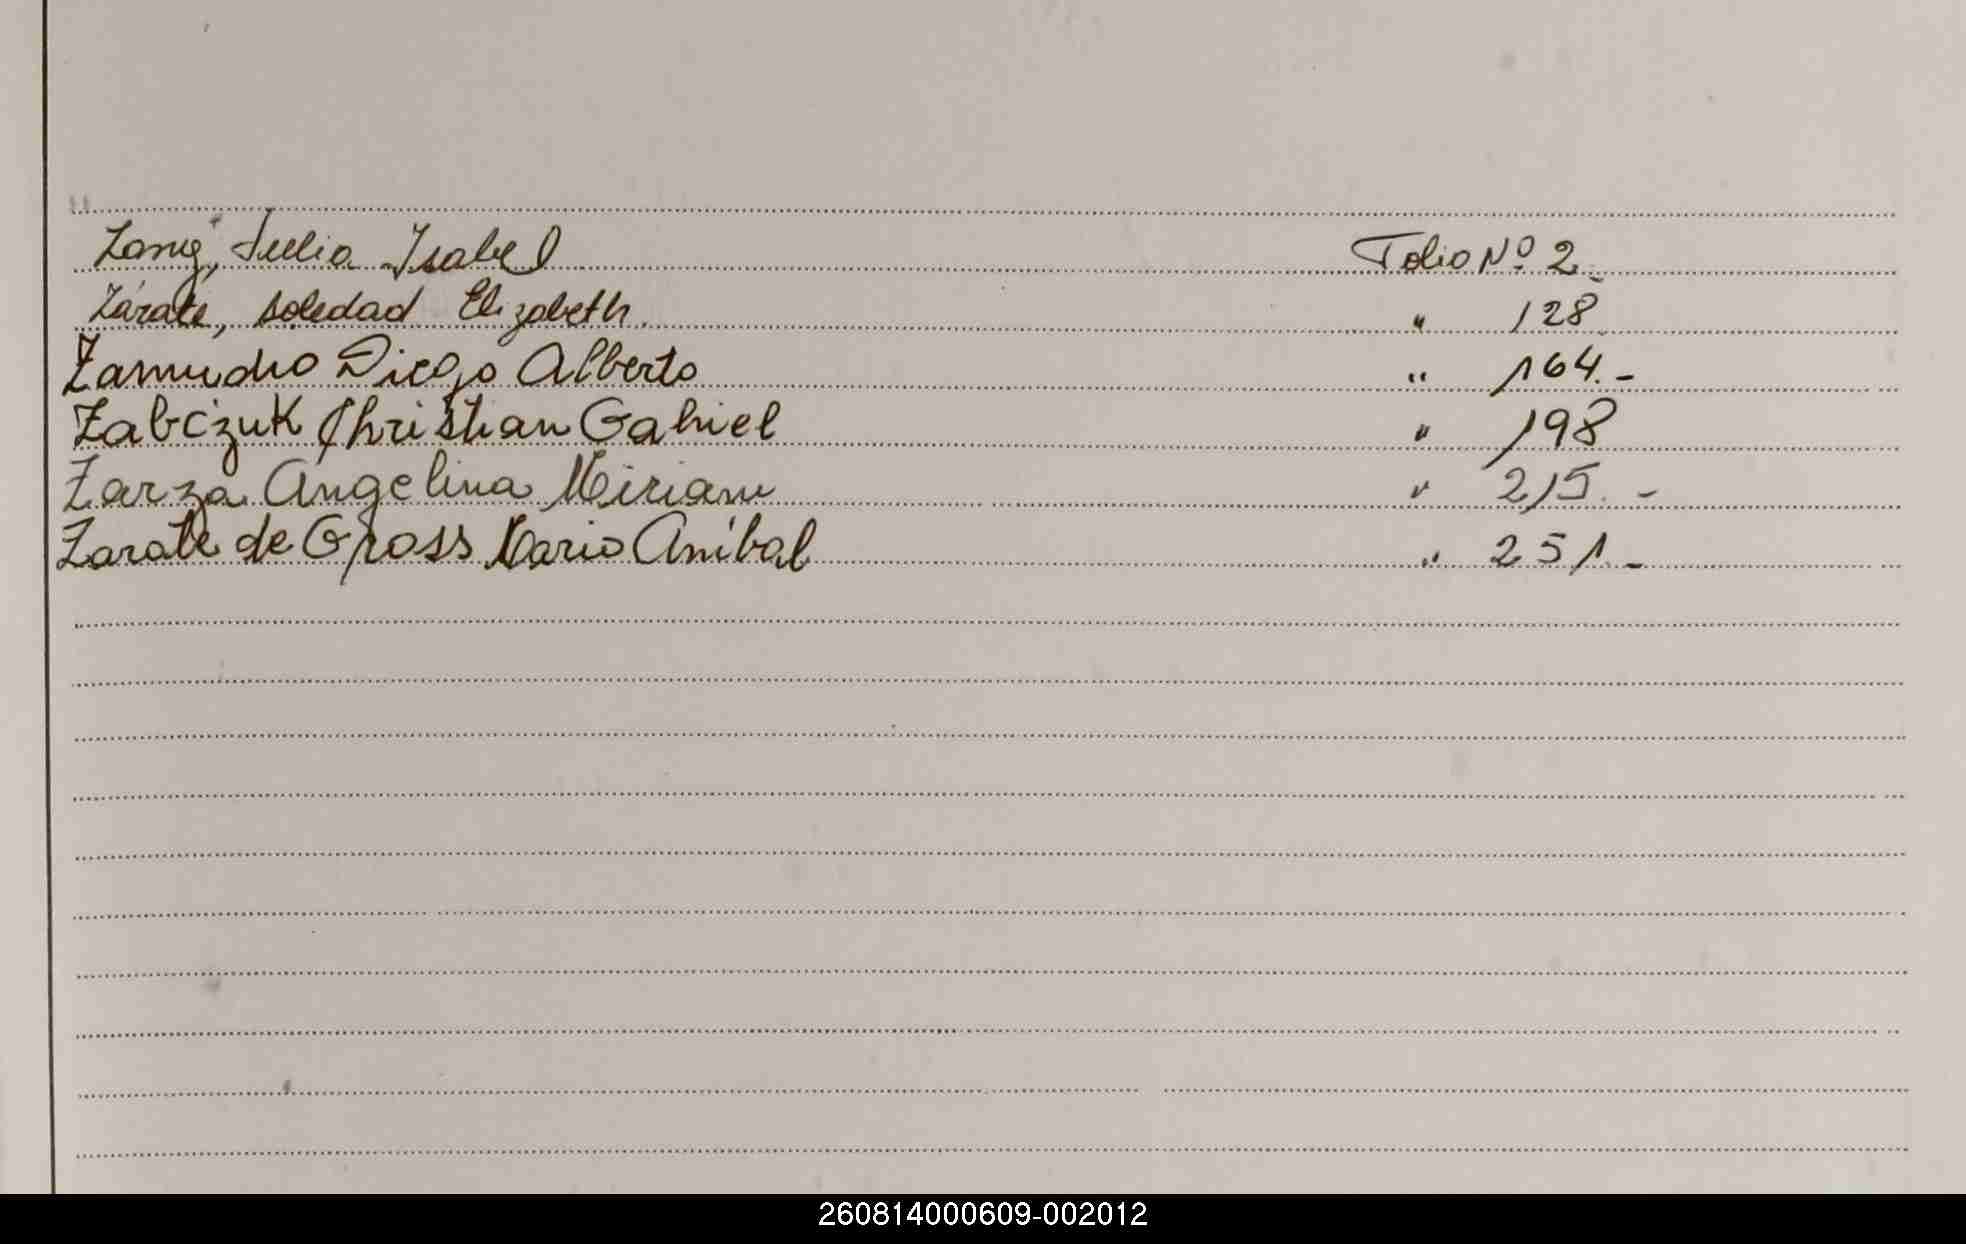 Zang, Julia Isabel Folio Nº 2.-
Zárate, Soledad Elizabeth. " 128.
Zamudio Diego Alberto " 164.-
Zabczuk Christian Gabriel " 198
Zarza Angelina Miriam " 215.-
Zarate de Gross Mario Aníbal " 251.-
260814000609-002012